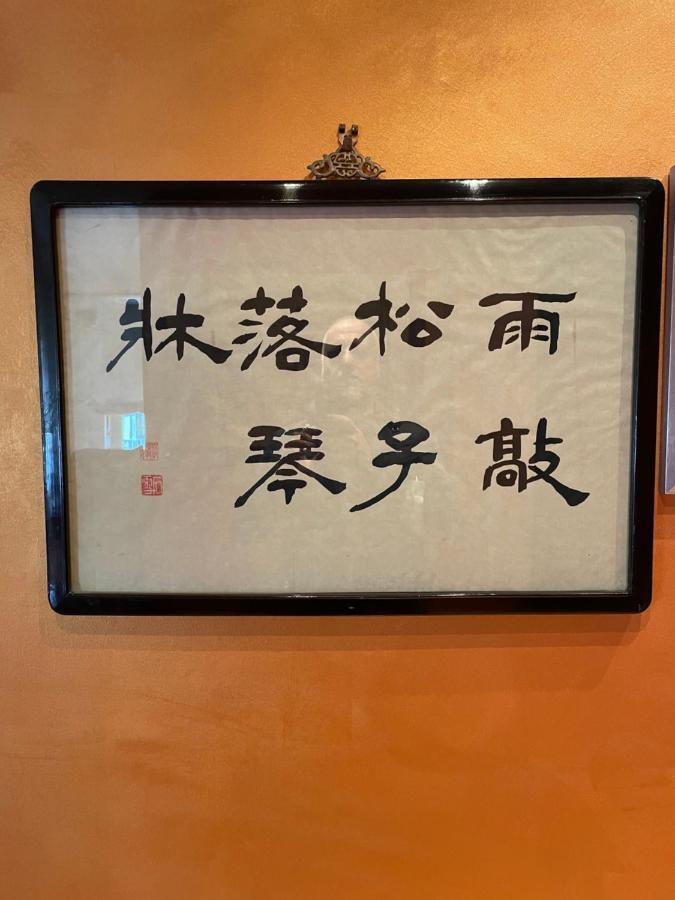 雨敲
松子
落琴
牀